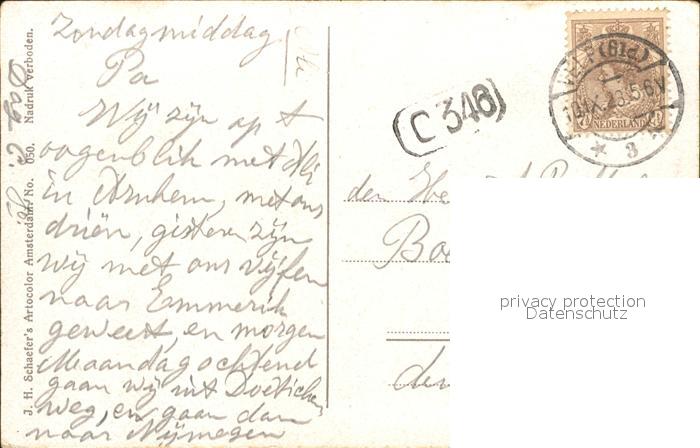 Zondagmiddag
Pa
Wij zijn op 't
oogenblik met
in Arnhem, met ons
driën, gisteren zijn
wij met ons vijfen
naar Emmerik
geweest, en morgen
Maandagochtend
gaan wij uit Doetichem
weg, en gaan dan
naar Nijmegen
Dag
J. H. Schaefer's Artocolor Amsterdam. No. 050. Nadruk verboden.
C 346
NEDERLAND
3
den
den
privacy protection
Datenschutz